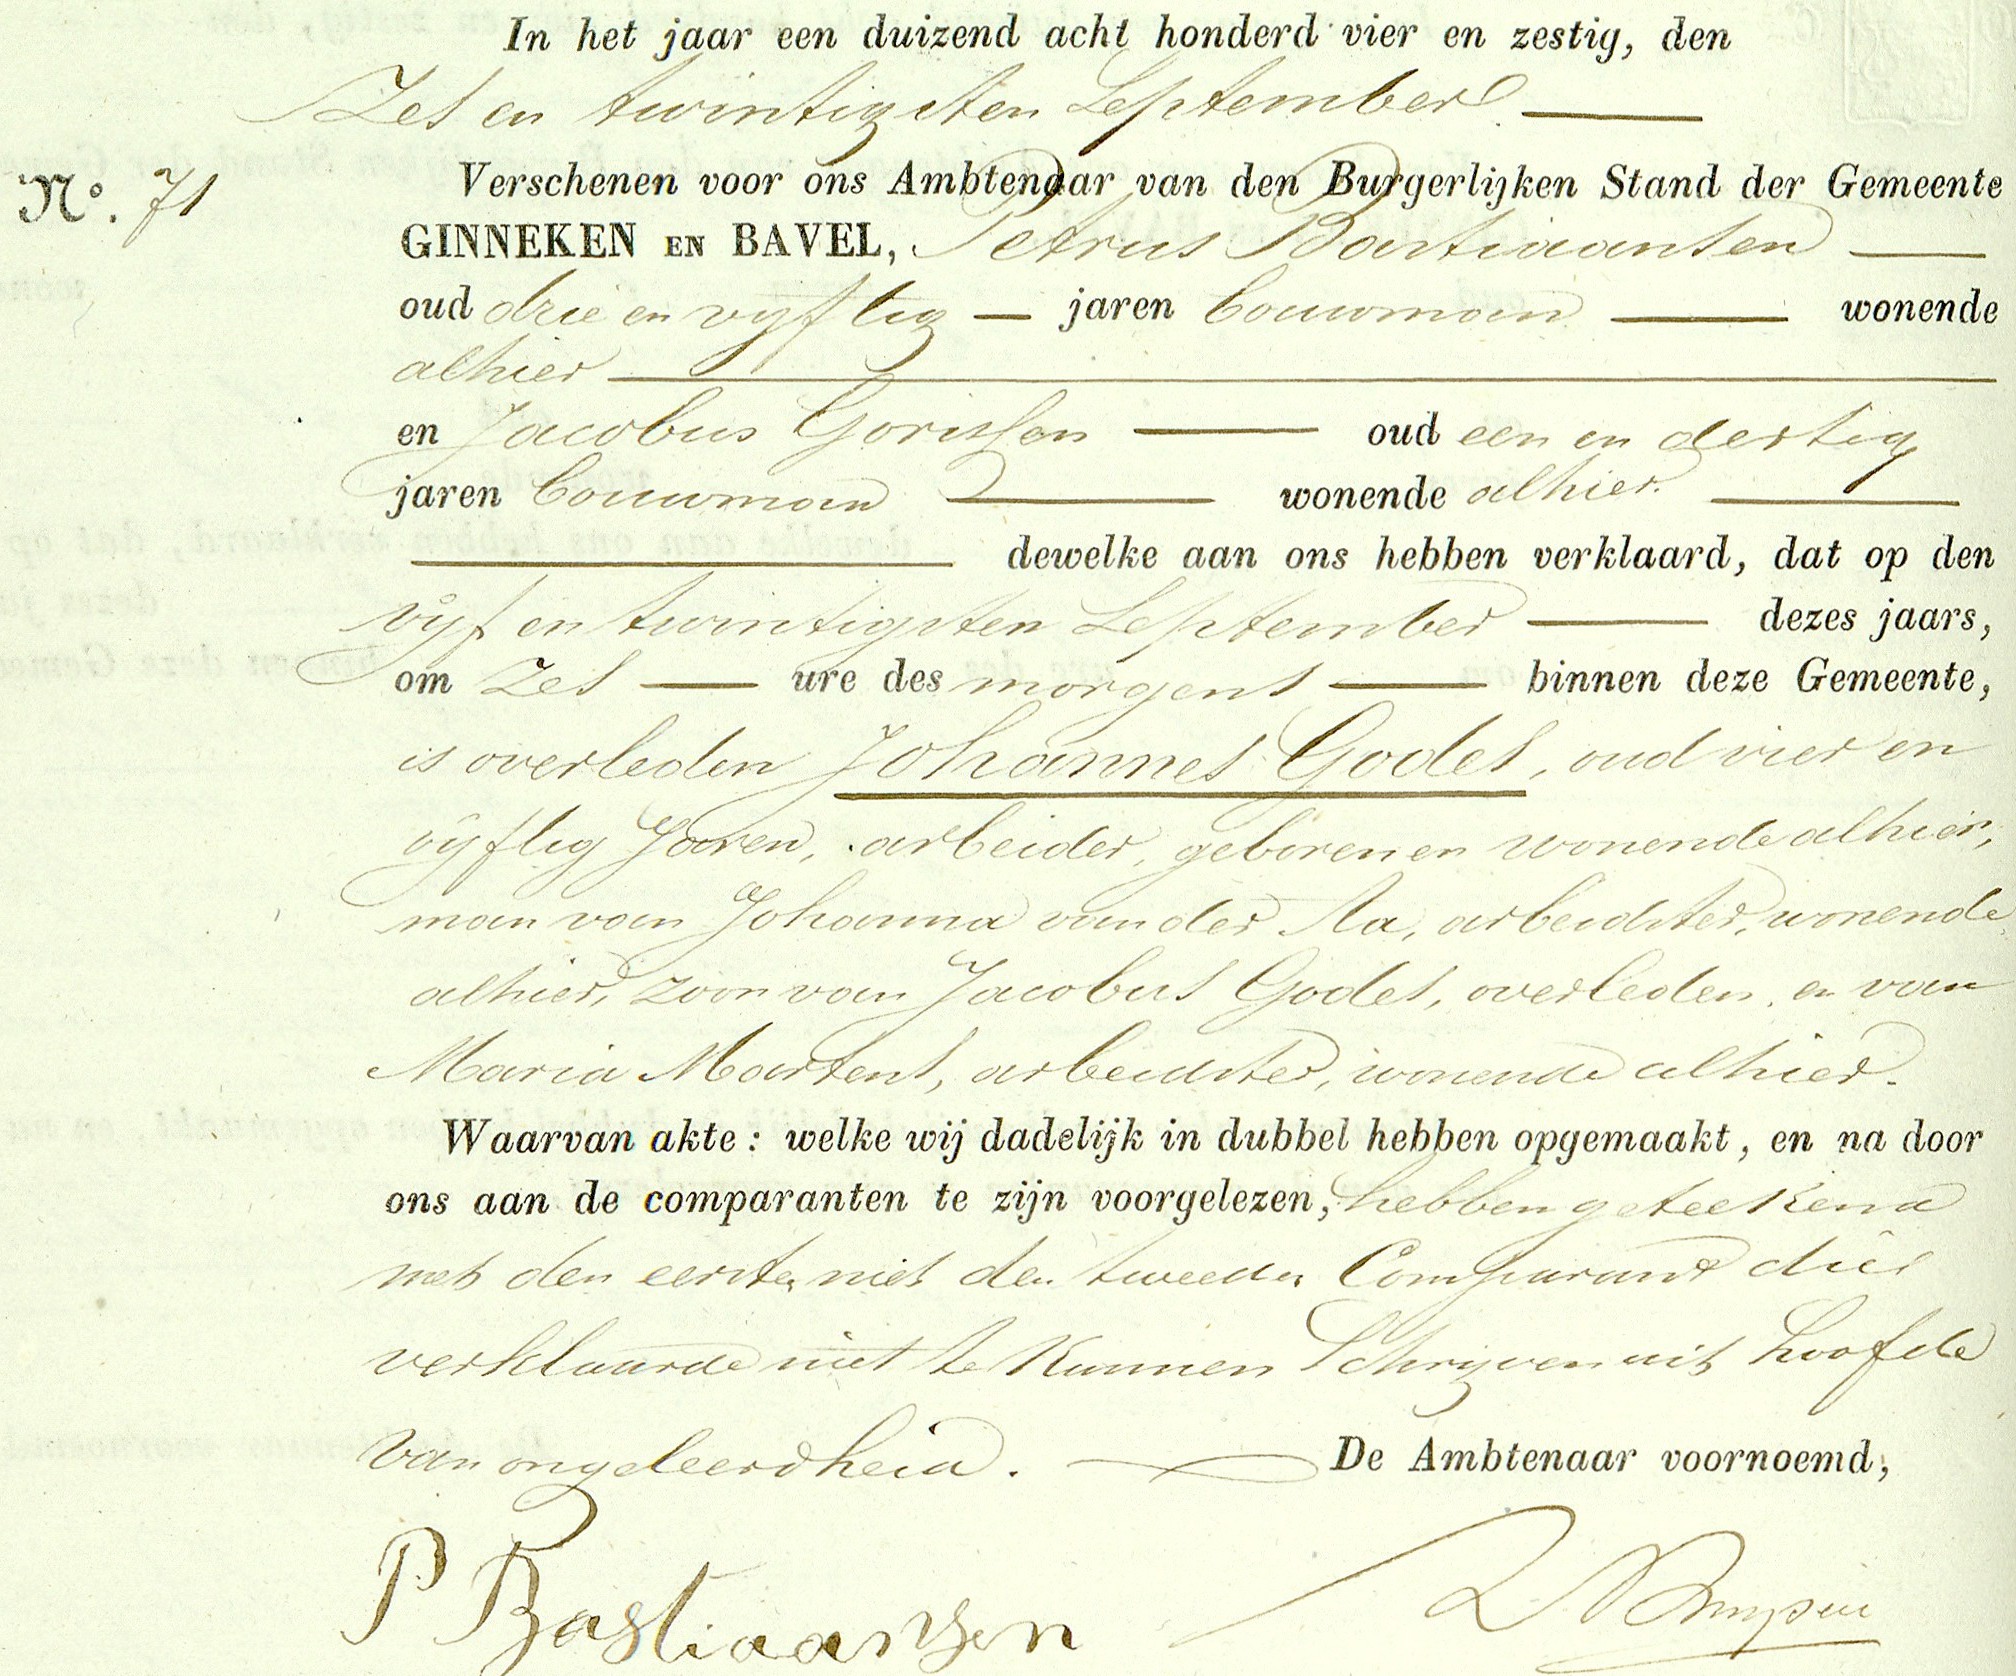 In het jaar een duizend acht honderd vier en zestig, den
Zes en twintigsten September.
No. 71
Verschenen voor ons Ambtenaar van den Burgerlijken Stand der Gemeente
GINNEKEN EN BAVEL, Petrus Bastiaansen
oud drie en vijftig jaren bouwman wonende
alhier
en Jacobus Gorissen oud een en dertig
jaren bouwman wonende alhier.
dewelke aan ons hebben verklaard, dat op den
vijf en twintigsten September dezes jaars,
om zes ure des morgens binnen deze Gemeente,
is overleden Johannes Godes, oud vier en
vijftig Jaren, arbeider, geboren en wonende alhier,
man van Johanna van der Aa, arbeidster, wonende
alhier, zoon van Jacobus Godes, overleden, en van
Maria Martens, arbeidster, wonende alhier.
Waarvan akte: welke wij dadelijk in dubbel hebben opgemaakt, en na door
ons aan de comparanten te zijn voorgelezen, hebben geteekend
met den eersten niet den tweeden Comparant die
verklaarde niet te kunnen Schrijven uit hoofde
van ongeleerdheid.
De Ambtenaar voornoemd,
P Bastiaansen